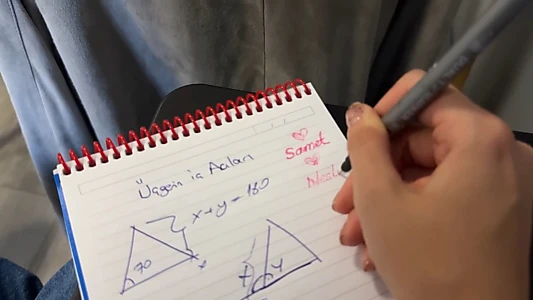 Üçgenin Açıları
Samet
x+y=180
70
x
x
y